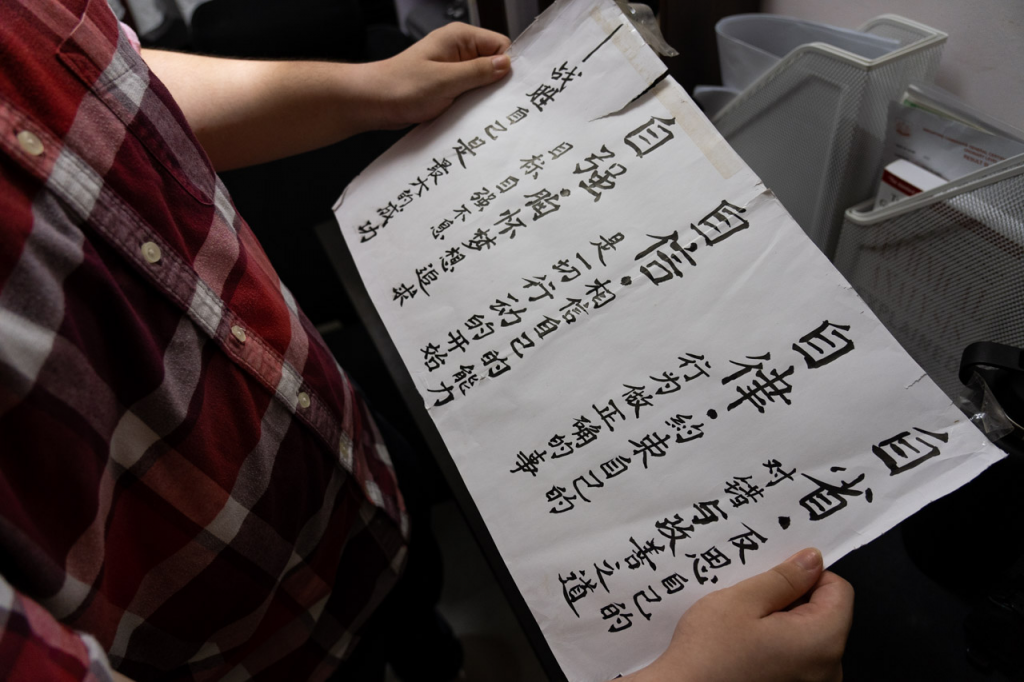 自省·反思自己的
对错与改善之道
自律·约束自己的
行为做正确的事
自信·相信自己的能力
是一切行动的开始
自强·胸怀梦想追求
目标自强不息
战胜自己是最大的成功